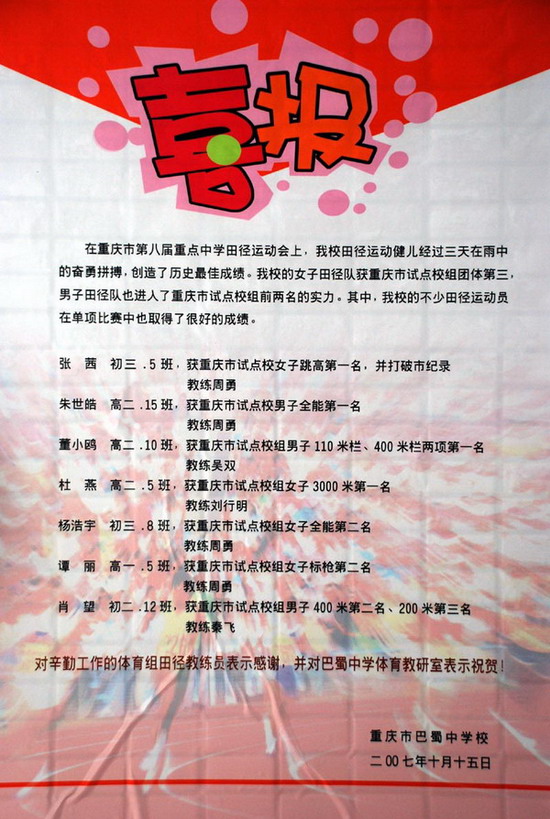 喜报
在重庆市第八届重点中学田径运动会上，我校田径运动健儿经过三天在雨中
的奋勇拼搏，创造了历史最佳成绩。我校的女子田径队获重庆市试点校组团体第三，
男子田径队也进人了重庆市试点校组前两名的实力。其中，我校的不少田径运动员
在单项比赛中也取得了很好的成绩。
张 茜 初三.5班，获重庆市试点校女子跳高第一名，并打破市纪录
教练周勇
朱世皓 高二.15班，获重庆市试点校男子全能第一名
教练周勇
董小鸥 高二.10班，获重庆市试点校组男子110米栏、400米栏两项第一名
教练吴双
杜 燕 高二.5班，获重庆市试点校组女子3000米第一名
教练刘行明
杨浩宇 初三.8班，获重庆市试点校组女子全能第二名
教练周勇
谭 丽 高一.5班，获重庆市试点校组女子标枪第二名
教练周勇
肖 望 初二.12班，获重庆市试点校组男子400米第二名、200米第三名
教练秦飞
对辛勤工作的体育组田径教练员表示感谢，并对巴蜀中学体育教研室表示祝贺！
重庆市巴蜀中学校
二00七年十月十五日